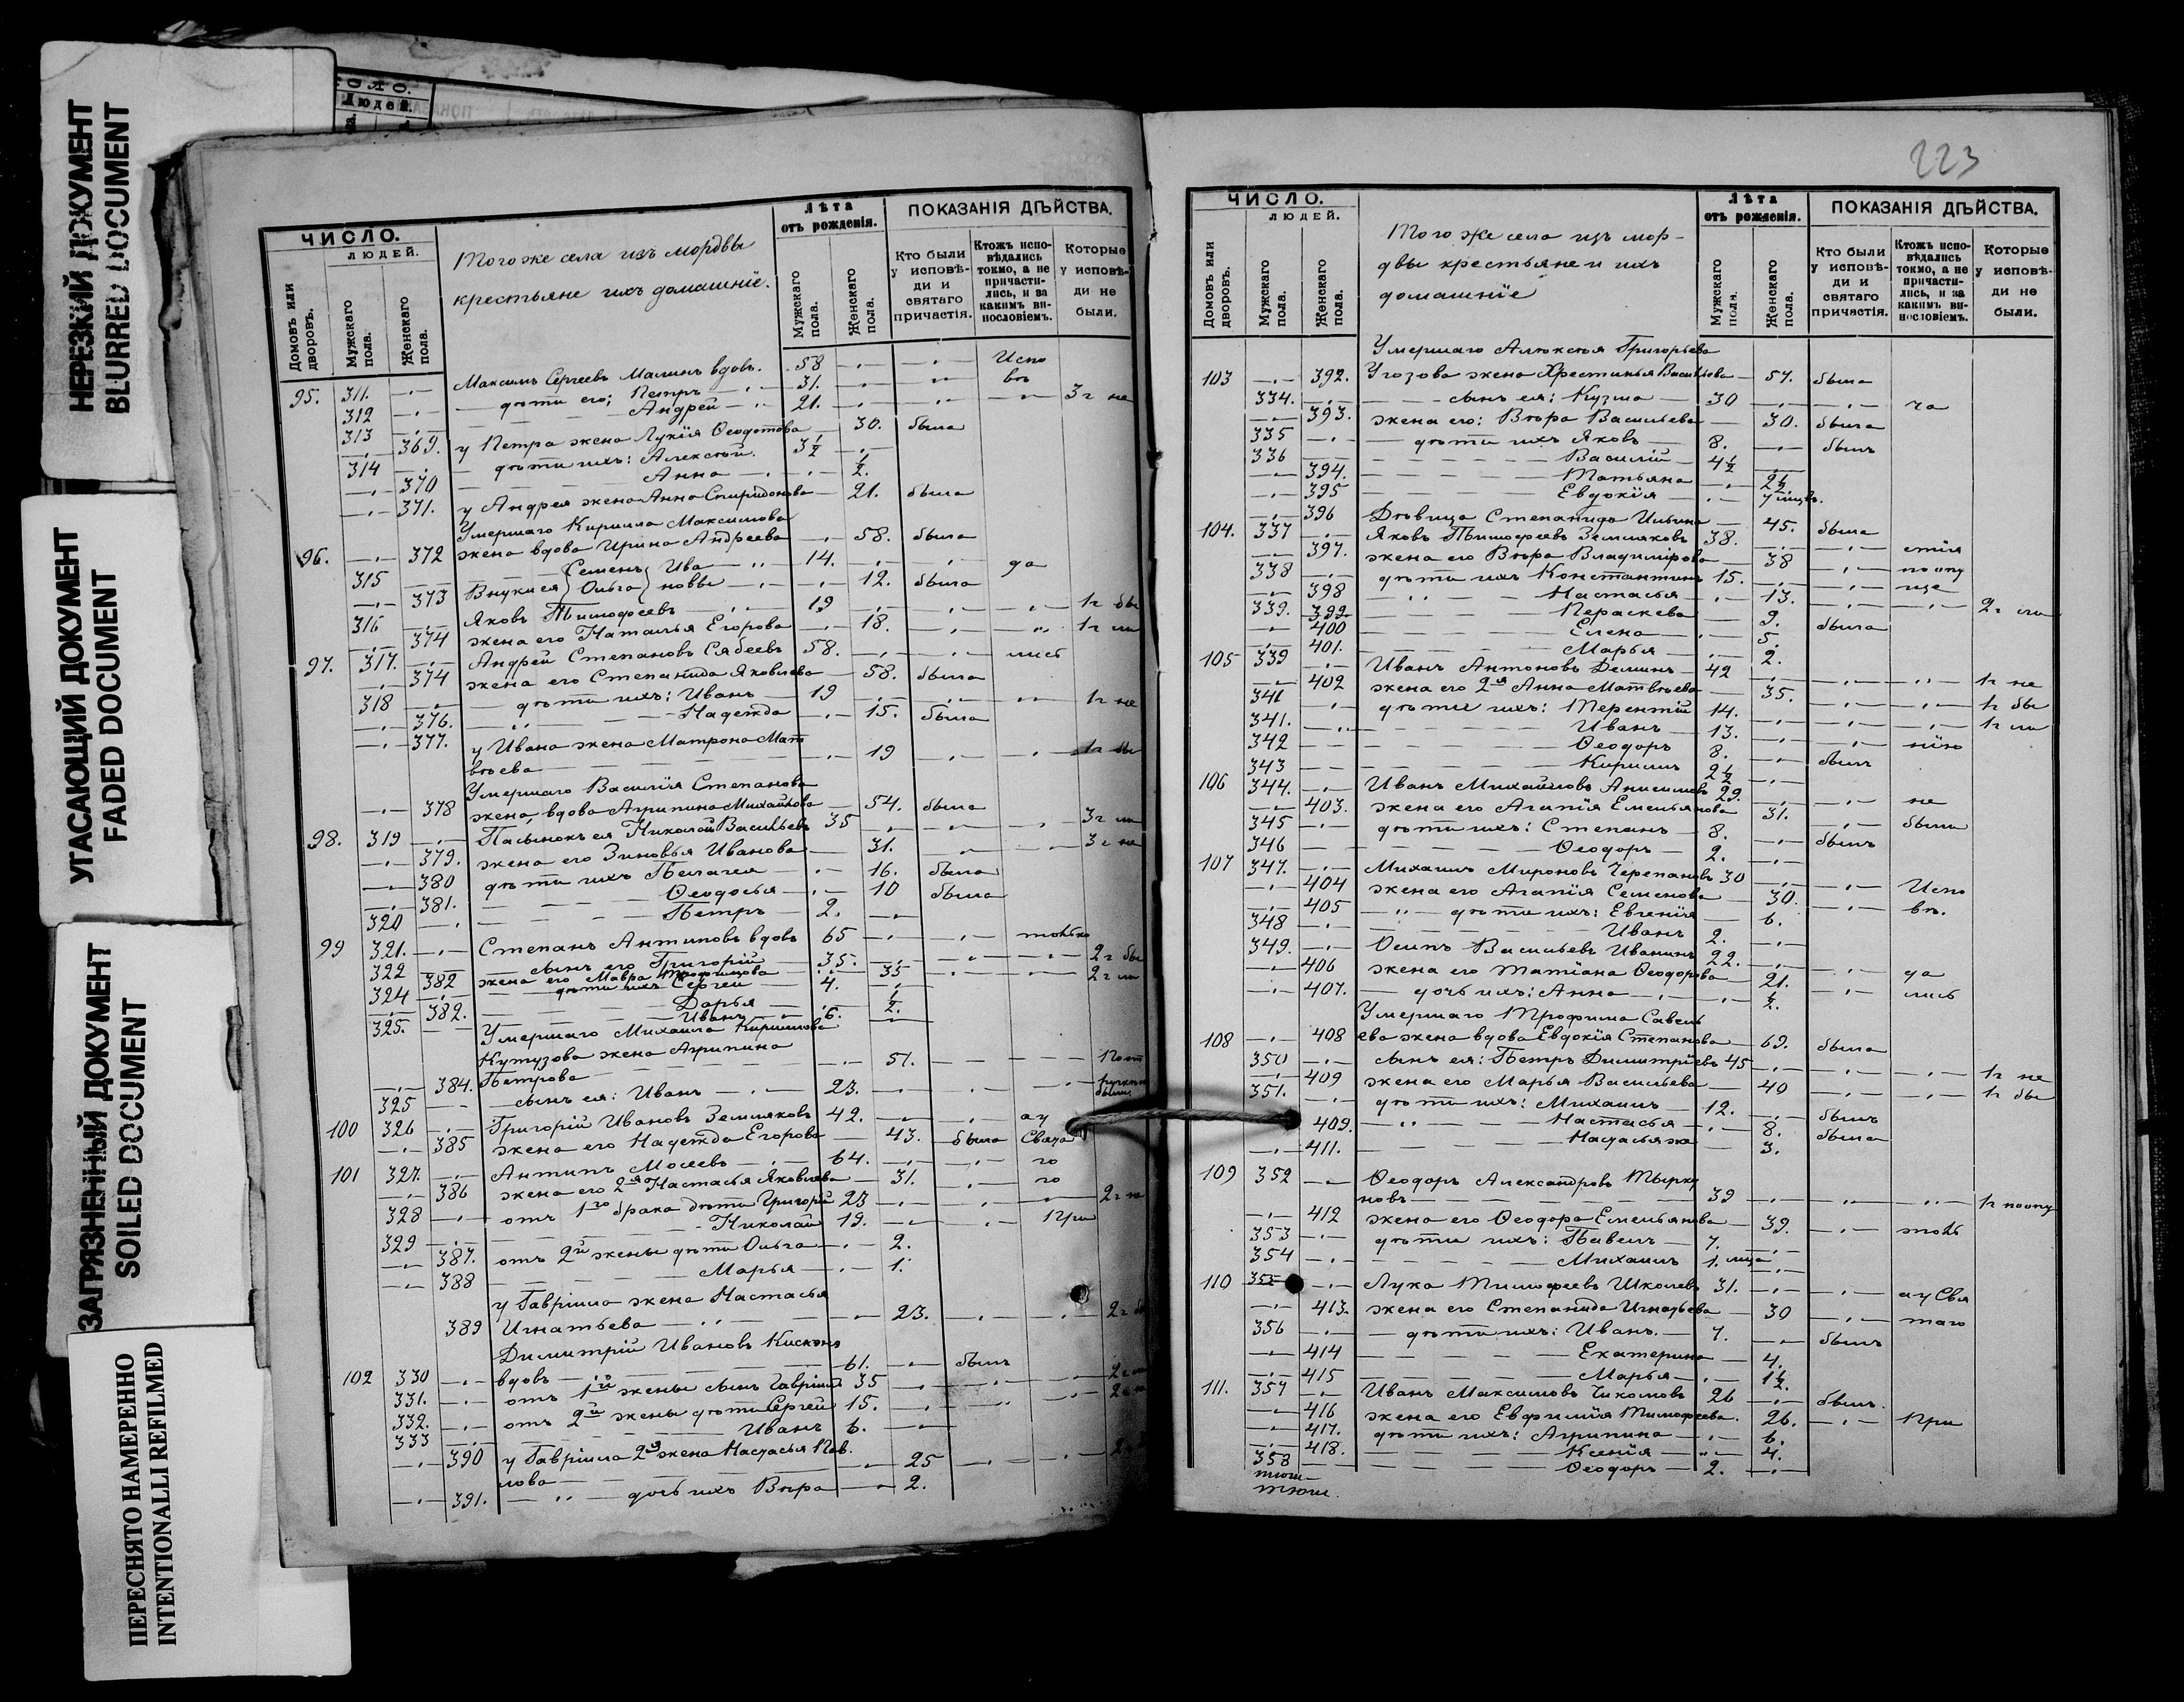 НЕРЕЗКИЙ ДОКУМЕНТ
BLURRED DOCUMENT
УГАСАЮЩИЙ ДОКУМЕНТ
FADED DOCUMENT
ЗАГРЯЗНЕННЫЙ ДОКУМЕНТ
SOILED DOCUMENT
ПЕРЕСНЯТО НАМЕРЕННО
INTENTIONALLI REFILMED
Людей.
ЧИСЛО.
ЛЮДЕЙ.
Домовъ или дворовъ.
Мужскаго пола.
Женскаго пола.
Того же села изъ мордвы
крестьяне ихъ домашніе.
Лѣта
отъ рожденія.
Мужскаго пола.
Женскаго пола.
ПОКАЗАНІЯ ДѢЙСТВА.
Кто были у исповѣди и святаго причастія.
Ктожъ исповѣдались токмо, а не причастились, и за какимъ винословіемъ.
Которые у исповѣди не были.
95. 311. Максимъ Сергеевъ Малинъ вдовъ. 58 Испо
312 дѣти его; Петръ 31. вѣ
313 Андрей 21. 3 г не
369. у Петра жена Лукія Ѳеодотова 30. была
314 дѣти ихъ: Алексѣй. 3 1/2
370 Анна 1/2.
371. у Андрея жена Анна Спиридонова 21. была
Умершаго Кирилла Максимова
96. 372 жена вдова Ирина Андреева 58. была
315 Семенъ Ива 14. да
373 Внуки ея Ольга новы 12. была
316 Яковъ Тимофеевъ 19 1 г бы
374 жена его Наталья Егорова 18. 1 г ли
97. 317. Андрей Степановъ Сябеевъ 58. лись
374 жена его Степанида Яковлева 58. была
318 дѣти ихъ: Иванъ 19 1 г не
376. Надежда 15. была
377. у Ивана жена Матрона Мат
вѣева 19 1 г бы
Умершаго Василія Степанова
378 жена, вдова Агрипина Михайлова 54. была
98. 319 Пасынокъ ея Николай Васильевъ 35 3 г ли
379. жена его Зиновья Иванова 31. 3 г не
380 дѣти ихъ Пелагея 16. была
381. Ѳеодосья 10 была
320 Петръ 2.
99 321. Степанъ Антиповъ вдовъ 65 только
322 сынъ его Григорій 35. 2 г бы
382 жена его Мавра 35 2 г ли
324 дѣти ихъ Сергей 4.
382. Дарья 1/2.
325. Иванъ 6.
Умершаго Михаила Кириллова
Кутузова жена Агрипина
384. Петрова 51.
325 сынъ ея: Иванъ 23.
100 326 Григорій Ивановъ Земляковъ 42. ау
385 жена его Надежда Егорова 43. была Свята
101 327. Антипъ Мосеевъ 64. го
386 жена его 2я Настасья Яковлева 31. го
328 отъ 1го брака дѣти Григорій 23 2 г не
329 Николай 19. При
387. отъ 2й жены дѣти Ольга 2.
388 Марья 1.
у Гавріила жена Настасья
389 Игнатьева 23. 2 г бы
Димитрій Ивановъ
102 330 вдовъ 61. былъ
331. отъ 1й жены сынъ Гавріилъ 35
332. отъ 2й жены дѣти Сергей 15.
333 Иванъ 6.
390 у Гавріила 2я жена Настасья Пав.
лова 25
391. дочь ихъ Вѣра 2.
223
ЧИСЛО.
ЛЮДЕЙ.
Домовъ или дворовъ.
Мужскаго пола.
Женскаго пола.
Того же села изъ мор-
двы крестьяне и ихъ
домашніе
Лѣта
отъ рожденія.
Мужскаго пола.
Женскаго пола.
ПОКАЗАНІЯ ДѢЙСТВА.
Кто были у исповѣди и святаго причастія.
Ктожъ исповѣдались токмо, а не причастились, и за какимъ винословіемъ.
Которые у исповѣди не были.
Умершаго Алексѣя Григорьева
103 392. Угозова жена Христинья Васильева 57. была
334. сынъ ея: Кузма 30 ча
393. жена его: Вѣра Васильева 30. была
335 дѣти ихъ Яковъ 8. былъ
336 Василій 4 1/2
394. Татьяна 2 1/2
395 Евдокія 7 мцвъ.
396 Дѣвица Степанида Ильина 45. была
104. 337 Яковъ Тимофеевъ Земляковъ 38. стія
397. жена его Вѣра Владимірова 38 по опу
338 дѣти ихъ Константинъ 15. ще
398 Настасья 13. 2 г ли
339. 399. Пераскева 9. была
400 Елена 5.
401. Марья 2.
105 339 Иванъ Антоновъ Деминъ 42 1 г не
402 жена его 2я Анна Матвѣева 35. 1 г бы
341 дѣти ихъ: Терентій 14. 1 г ли
341. Иванъ 13. нію
342 Ѳеодоръ 8. былъ
343 Кирилъ 2 1/2
106 344. Иванъ Михайловъ Анисимовъ 29. не
403. жена его Агапія Емельянова 31. были
345 дѣти ихъ: Степанъ 8. былъ
346 Ѳеодоръ 2.
107 347. Михаилъ Мироновъ Черепановъ 30 Испо
404 жена его Агапія Семенова 30. вѣ.
405 дѣти ихъ: Евгенія 6.
348 Иванъ 2.
349. Осипъ Васильевъ Иванинъ 22. да
406 жена его Татіана Ѳеодорова 21. лись
407. дочь ихъ: Анна 1/2.
Умершаго Трофима Савель
108 408 ева жена вдова Евдокія Степанова 69. была
350 сынъ ея: Петръ Димитріевъ 45 1 г не
409 жена его Марья Васильева 40 1 г бы
351. дѣти ихъ: Михаилъ 12. былъ
409. Настасья 8. была
411. Настасья же 3.
109 352 Ѳеодоръ Александровъ Тырку
новъ 39 1 г по опу
412 жена его Ѳеодора Емельянова 39. толь
353 дѣти ихъ: Павелъ 7.
354 Михаилъ 1. мца
110 355 Лука Тимофеевъ Школевъ 31. ау Свя
413. жена его Степанида Игнатьева 30 таго
356 дѣти ихъ: Иванъ. 7. былъ
414 Екатерина 4.
415 Марья 1 1/2.
111. 357 Иванъ Максимовъ Чикомовъ 26 былъ.
416 жена его Евфимія Тимофеева. 26. При
417. дѣти ихъ: Агрипина 6.
418. Ксенія 4.
358 Ѳеодоръ 2.